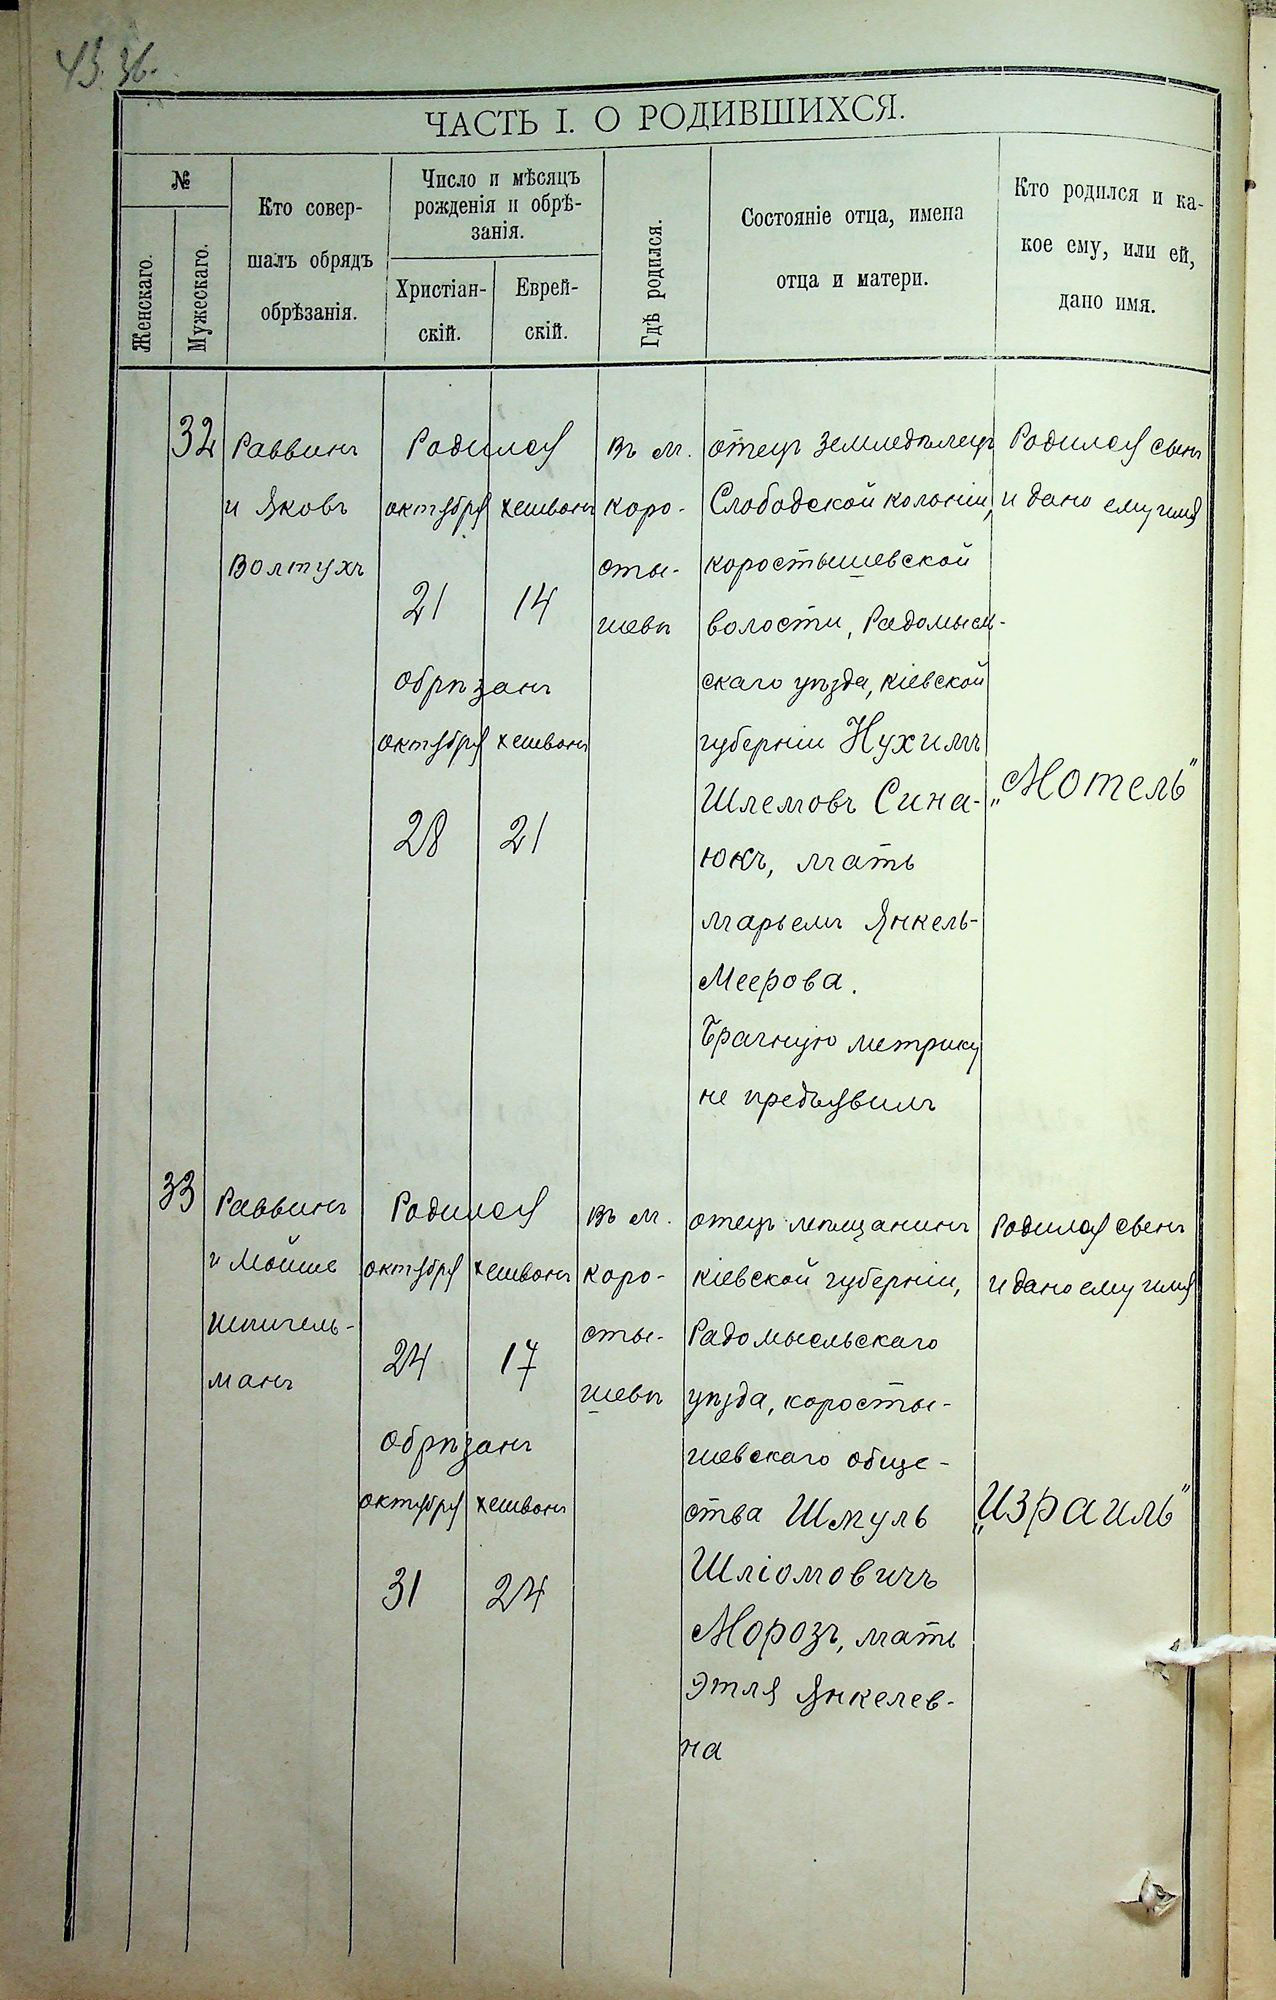 43. 36.
ЧАСТЬ I. О РОДИВШИХСЯ.
№
Женскаго.
Мужескаго.
Кто совер-
шалъ обрядъ
обрѣзанія.
Число и мѣсяцъ
рожденія и обрѣ-
занія.
Христіан-
скій.
Еврей-
скій.
Гдѣ родился.
Состояніе отца, имена
отца и матери.
Кто родился и ка-
кое ему, или ей,
дано имя.
32
Раввинъ
и Яковъ
Волтухъ
Родился
октября хешвонъ
21 14
обрѣзанъ
октября хешвонъ
28 21
Въ м.
Коро-
сты-
шевѣ
отецъ земледѣлецъ
Слободской колоніи,
коростышевской
волости, Радомысл-
скаго уѣзда, кіевской
губерніи Нухимъ
Шлемовъ Сина-
юкъ, мать
Марьемъ Янкель-
Меерова.
Брачную метрику
не предъявилъ
Родился сынъ
и дано ему имя
„Мотель"
33
Раввинъ
и Мойше
Шпигель-
манъ
Родился
октября хешвонъ
24 17
обрѣзанъ
октября хешвонъ
31 24
Въ м.
Коро-
сты-
шевѣ
отецъ мѣщанинъ
кіевской губерніи,
Радомысльскаго
уѣзда, коросты-
шевскаго обще-
ства Шмуль
Шліомовичъ
Морозъ, мать
Этля Янкелев-
на
Родился сынъ
и дано ему имя
„Израиль"